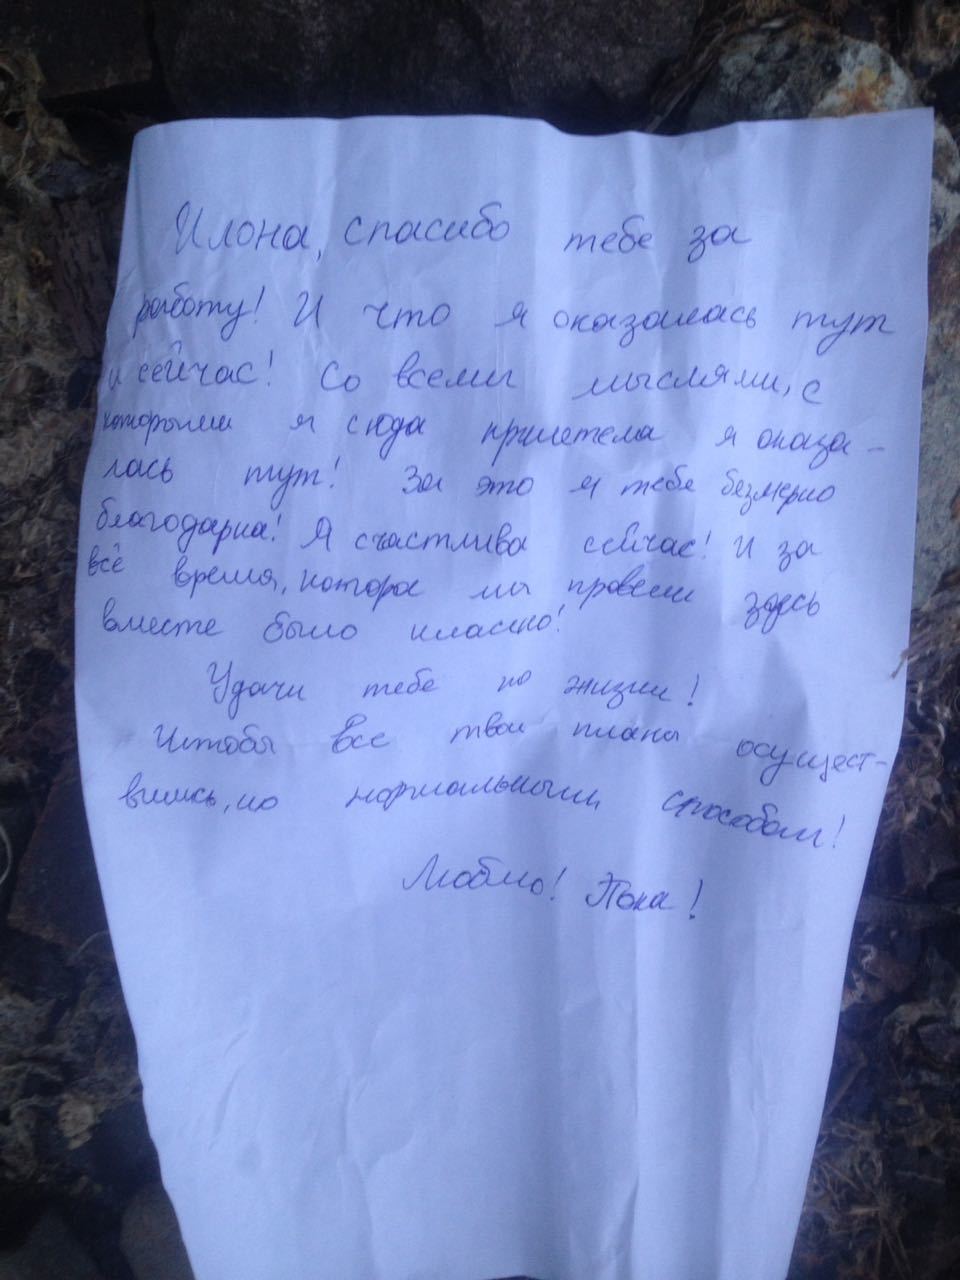 Илона, спасибо тебе за
работу! И что я оказалась тут
и сейчас! Со всеми мыслями, с
которыми я сюда прилетела я оказа-
лась тут! За это я тебе безмерно
благодарна! Я счастлива сейчас! И за
всё время, которое мы провели здесь
вместе было классно!
Удачи тебе по жизни!
И чтобы все твои планы осущест-
вились, но нормальным способом!
Люблю! Пока!